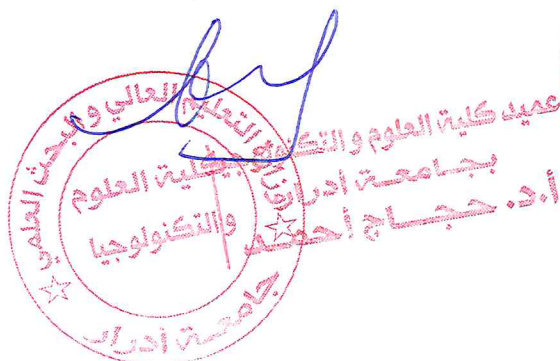 وزارة التعليم العالي والبحث العلمي
جامعة أدرار
كلية العلوم
والتكنولوجيا
عميد كلية العلوم والتكنولوجيا
بجامعة أدرار
أ.د. حجاج أحمد